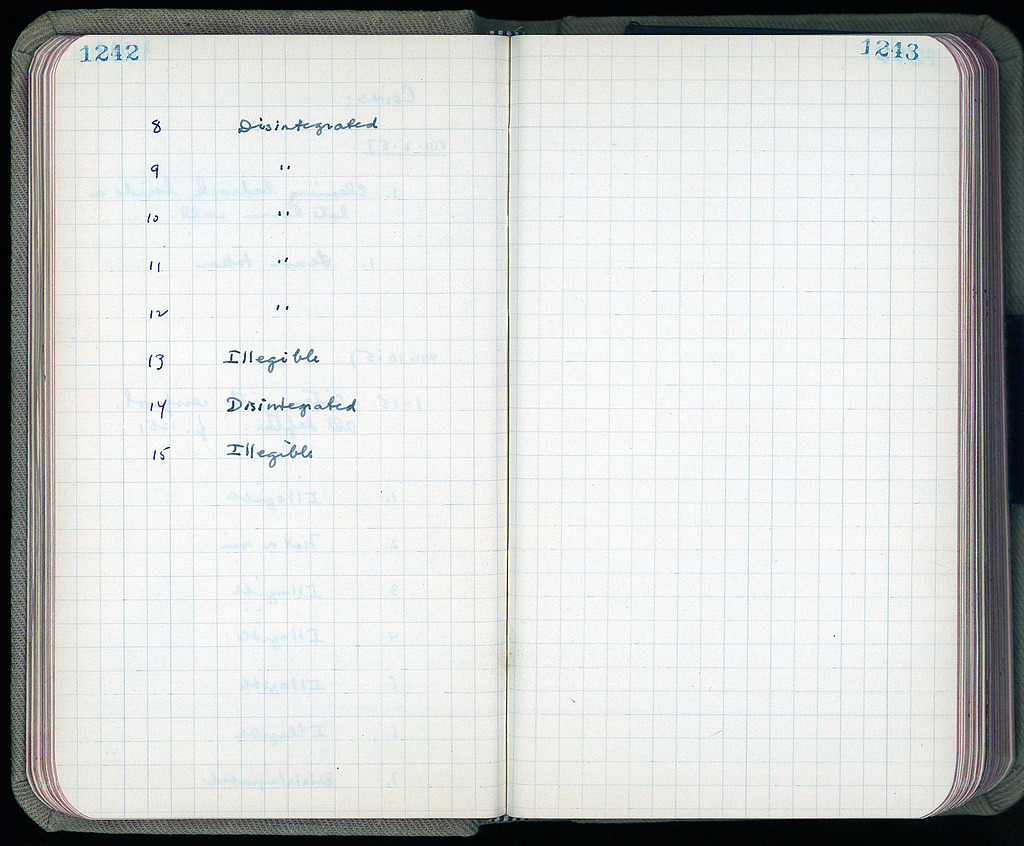 1242
8 Disintegrated
9 "
10 "
11 "
12 "
13 Illegible
14 Disintegrated
15 Illegible
1243